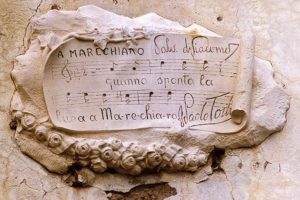 A MARECHIARO Salv. di Giacomo
quanno sponta la
luna a Ma-re-chia-ro Paolo Tosti